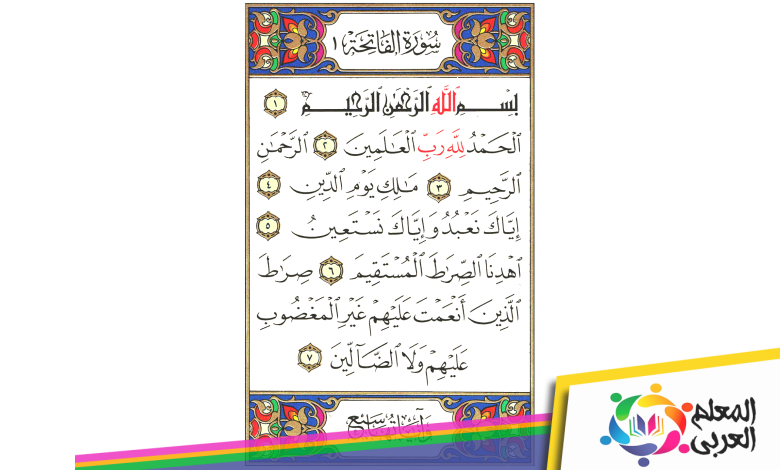 سُورَةُ الفَاتِحَة ١
بِسْمِ ٱللَّهِ ٱلرَّحْمَٰنِ ٱلرَّحِيمِ ١
ٱلْحَمْدُ لِلَّهِ رَبِّ ٱلْعَٰلَمِينَ ٢ ٱلرَّحْمَٰنِ
ٱلرَّحِيمِ ٣ مَٰلِكِ يَوْمِ ٱلدِّينِ ٤
إِيَّاكَ نَعْبُدُ وَإِيَّاكَ نَسْتَعِينُ ٥
ٱهْدِنَا ٱلصِّرَٰطَ ٱلْمُسْتَقِيمَ ٦ صِرَٰطَ
ٱلَّذِينَ أَنْعَمْتَ عَلَيْهِمْ غَيْرِ ٱلْمَغْضُوبِ
عَلَيْهِمْ وَلَا ٱلضَّآلِّينَ ٧
سبع
المعلم
العربي